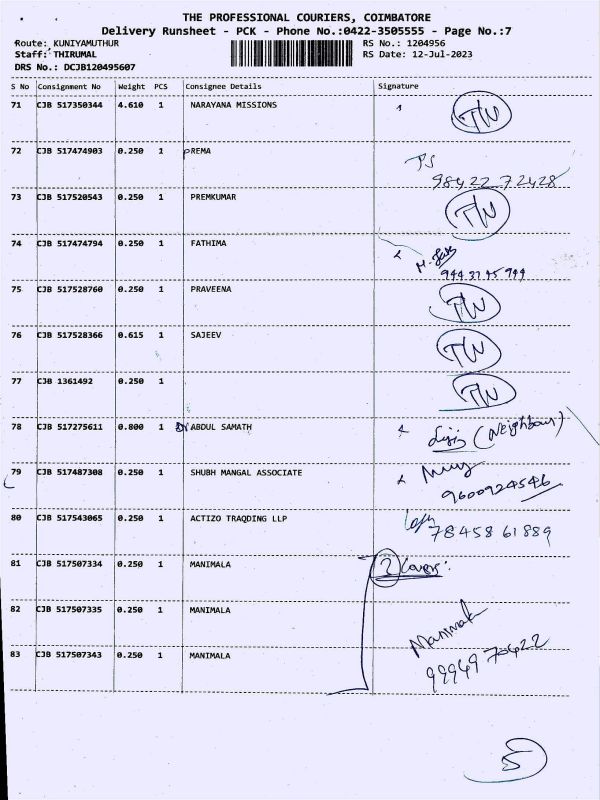 THE PROFESSIONAL COURIERS, COIMBATORE
Delivery Runsheet - PCK - Phone No.:0422-3505555 - Page No.:7
Route: KUNIYAMUTHUR RS No.: 1204956
Staff: THIRUMAL RS Date: 12-Jul-2023
DRS No.: DCJB120495607
S No Consignment No Weight PCS Consignee Details Signature
71 CJB 517350344 4.610 1 NARAYANA MISSIONS
72 CJB 517474903 0.250 1 PREMA
98422 72428
73 CJB 517520543 0.250 1 PREMKUMAR
74 CJB 517474794 0.250 1 FATHIMA
75 CJB 517528760 0.250 1 PRAVEENA
76 CJB 517528366 0.615 1 SAJEEV
77 CJB 1361492 0.250 1
78 CJB 517275611 0.800 1 Dr ABDUL SAMATH (Neighbour)
79 CJB 517487308 0.250 1 SHUBH MANGAL ASSOCIATE
9600924546
80 CJB 517543065 0.250 1 ACTIZO TRAQDING LLP
78458 61889
81 CJB 517507334 0.250 1 MANIMALA 2 Covers
82 CJB 517507335 0.250 1 MANIMALA
83 CJB 517507343 0.250 1 MANIMALA
5